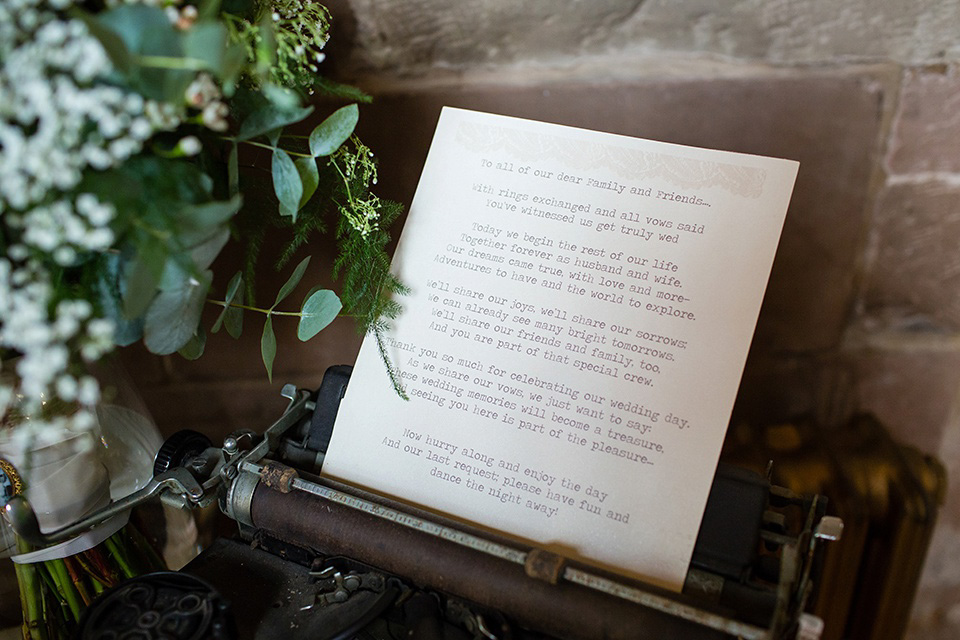 To all of our dear Family and Friends...
With rings exchanged and all vows said
You've witnessed us get truly wed
Today we begin the rest of our life
Together forever as husband and wife.
Our dreams came true, with love and more-
Adventures to have and the world to explore.
We'll share our joys, we'll share our sorrows;
We can already see many bright tomorrows.
We'll share our friends and family, too,
And you are part of that special crew.
Thank you so much for celebrating our wedding day.
As we share our vows, we just want to say:
These wedding memories will become a treasure,
seeing you here is part of the pleasure...
Now hurry along and enjoy the day
And our last request; please have fun and
dance the night away!